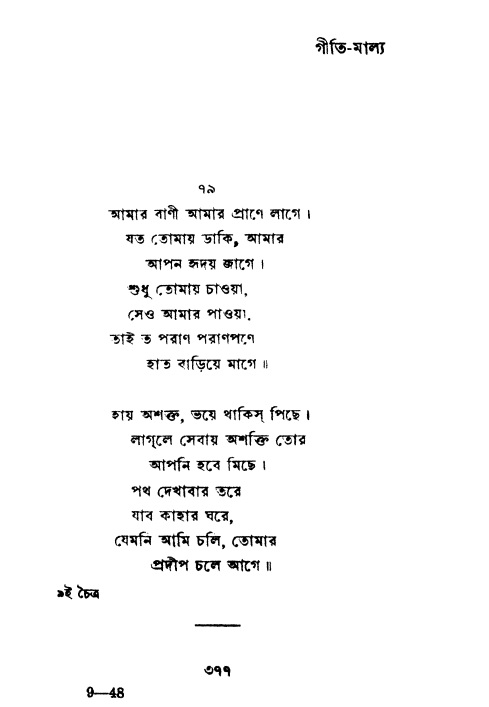 গীতি-মাল্য
৭৯
আমার বাণী আমার প্রাণে লাগে।
যত তোমায় ডাকি, আমার
আপন হৃদয় জাগে।
শুধু তোমায় চাওয়া,
সেও আমার পাওয়া,
তাই ত পরাণ পরাণপণে
হাত বাড়িয়ে মাগে॥
হায় অশক্ত, ভয়ে থাকিস্ পিছে।
লাগ্‌লে সেবায় অশক্তি তোর
আপনি হবে মিছে।
পথ দেখাবার তরে
যাব কাহার ঘরে,
যেমনি আমি চলি, তোমার
প্রদীপ চলে আগে॥
৯ই চৈত্র
৩৭৭
9—48